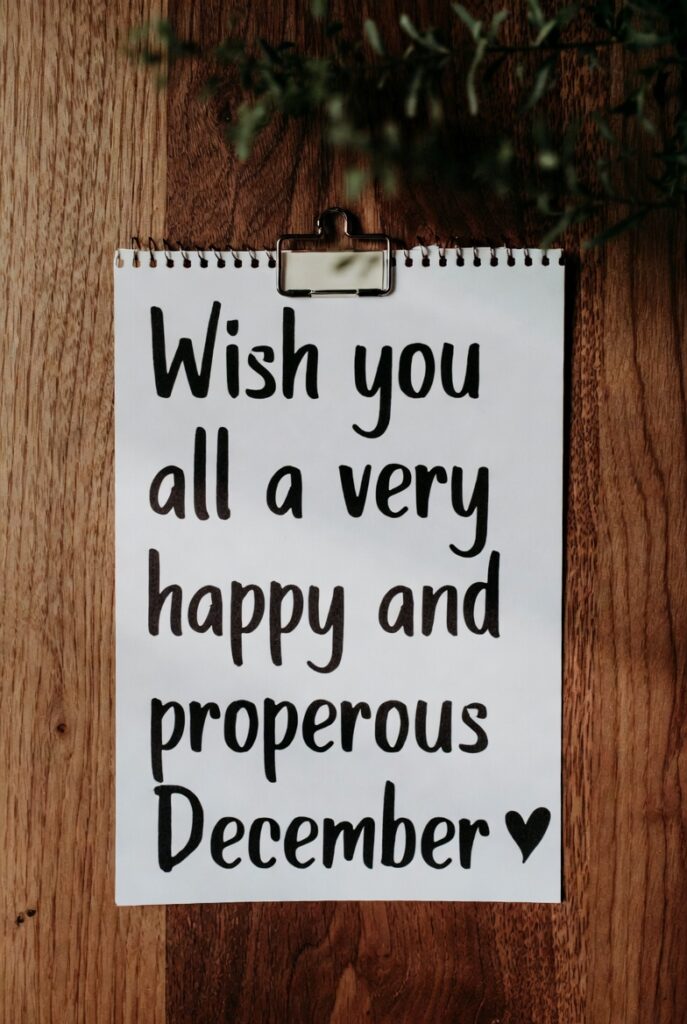 Wish you
all a very
happy and
properous
December ♥